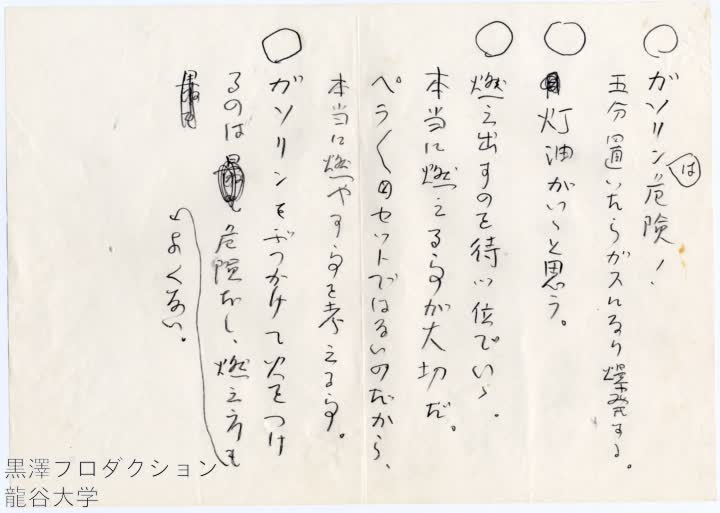 ○ ガソリンは危険!
五分置いたらガスになり爆発する。
○ 灯油がいゝと思う。
○ 燃え出すのを待つ位でいゝ。
本当に燃える事が大切だ。
ペラ〱のセットではないのだから、
本当に燃やす事を考える事。
○ ガソリンをぶつかけて火をつけ
るのは 危険だし、燃え方も
よくない。
黒澤プロダクション
龍谷大学